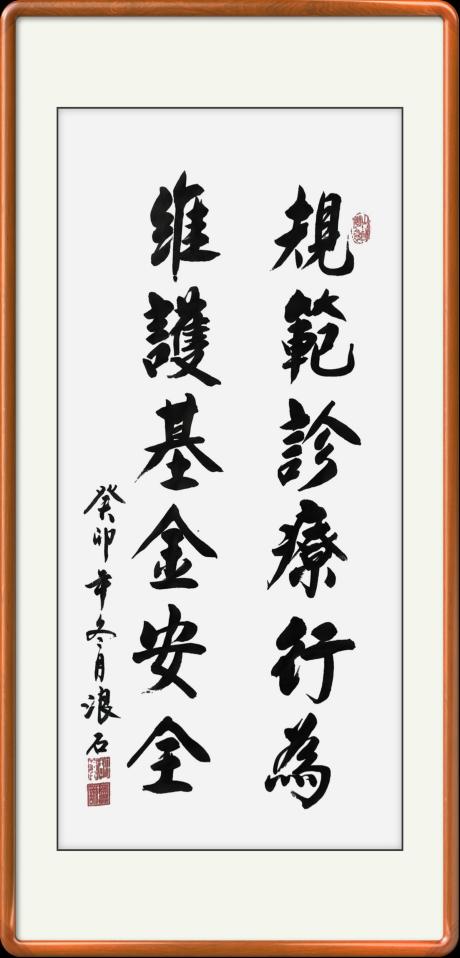 規範診療行為
維護基金安全
癸卯年冬月浪石